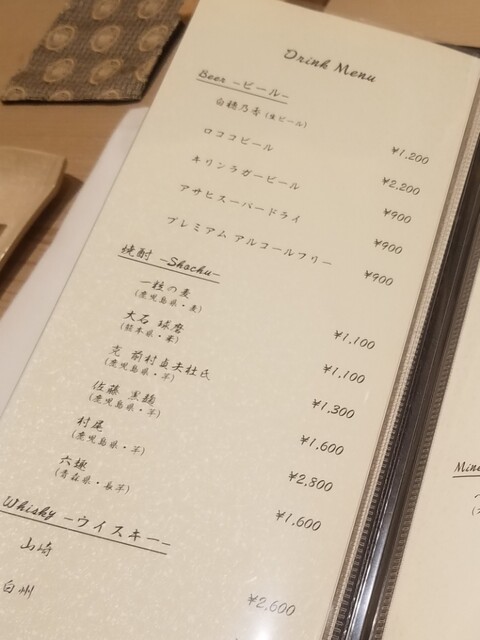 Drink Menu
Beer -ビール-
白穂乃香 (生ビール) ¥1,200
ロココビール ¥2,200
キリンラガービール ¥900
アサヒスーパードライ ¥900
プレミアム アルコールフリー ¥900
焼酎 -Shochu-
一粒の麦 ¥1,100
(鹿児島県・麦)
大石 球磨 ¥1,100
(熊本県・米)
克 前村貞夫杜氏 ¥1,300
(鹿児島県・芋)
佐藤 黒麹 ¥1,600
(鹿児島県・芋)
村尾 ¥2,800
(鹿児島県・芋)
六趣 ¥1,600
(青森県・長芋)
Whisky -ウイスキー-
山崎 ¥2,600
白州